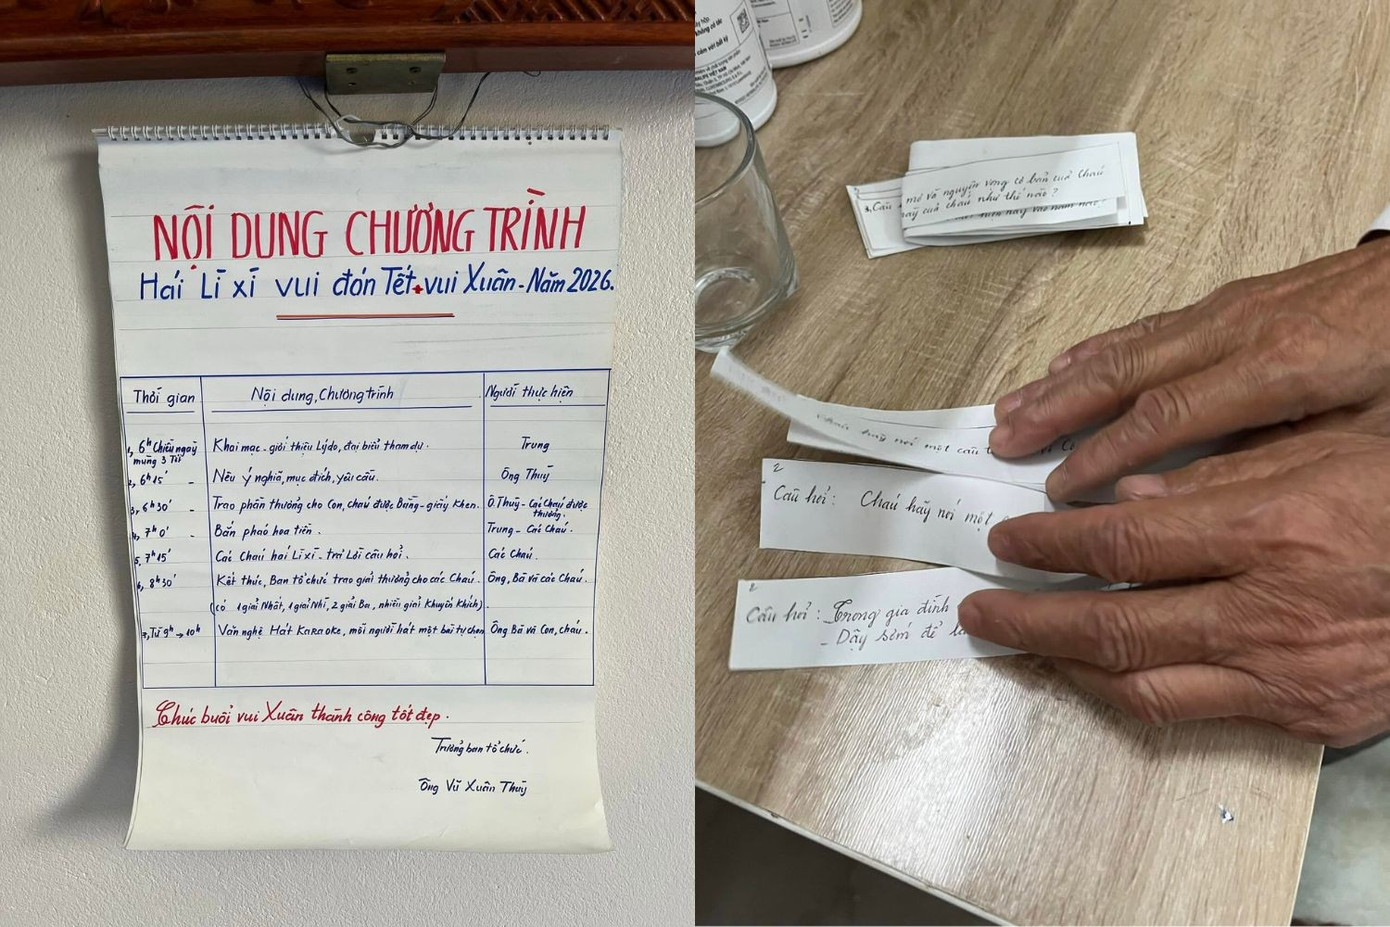 NỘI DUNG CHƯƠNG TRÌNH
Hái Lì xì vui đón Tết + vui Xuân - Năm 2026.
Thời gian
Nội dung, Chương trình
Người thực hiện
1, 6h Chiều ngày mùng 3 Tết
Khai mạc, giới thiệu Lý do, đại biểu tham dự.
Trung
2, 6h15' -
Nêu ý nghĩa, mục đích, yêu cầu.
Ông Thuỹ
3, 6h30' -
Trao phần thưởng cho Con, cháu được Bằng - giấy Khen.
Ô. Thuỹ - Các Cháu được thưởng.
4, 7h0' -
Bắn pháo hoa tiên.
Trung - Các Cháu.
5, 7h15'
Các Cháu hái Lì xì - trả Lời câu hỏi.
Các Cháu.
6, 8h30'
Kết thúc, Ban tổ chức trao giải thưởng cho các Cháu.
Ông, Bà và các Cháu.
(có 1 giải Nhất, 1 giải Nhì, 2 giải Ba, nhiều giải Khuyến Khích).
7, Từ 9h → 10h
Văn nghệ Hát Karaoke, mỗi người hát một bài tự chọn
Ông Bà và Con, cháu.
Chúc buổi vui Xuân thành công tốt đẹp.
Trưởng ban tổ chức.
Ông Vũ Xuân Thuỹ
mơ và nguyện vọng cơ bản của Cháu
của cháu như thế nào?
Câu
hiện nay vào năm nào?
hãy nói một câu
2
Câu hỏi: Cháu hãy nói một
Câu hỏi: Trong gia đình
- Dậy sớm để